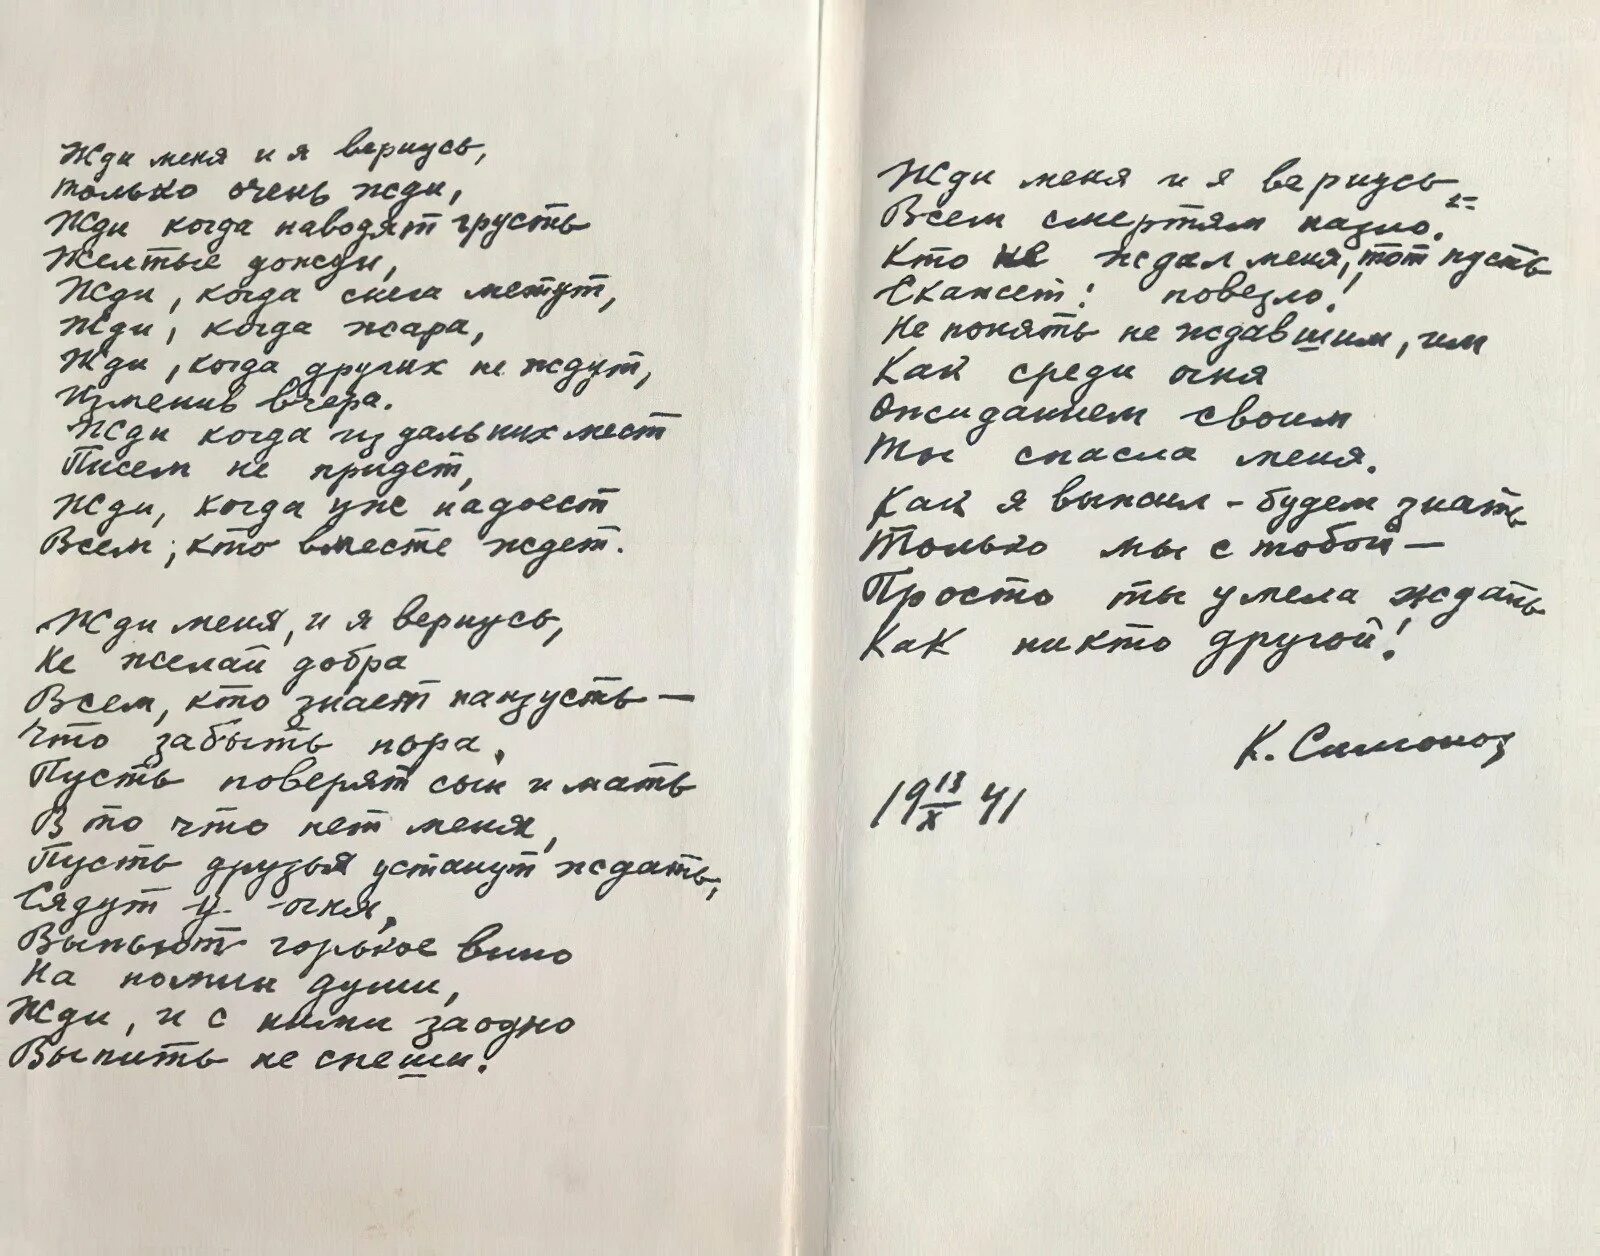 Жди меня и я вернусь,
только очень жди,
Жди когда наводят грусть
Желтые дожди,
Жди, когда снега метут,
Жди, когда жара,
Жди, когда других не ждут,
Изменив вчера.
Жди когда из дальних мест
Писем не придет,
Жди, когда уже надоест
Всем, кто вместе ждет.
Жди меня, и я вернусь,
Не желай добра
Всем, кто знает наизусть –
Что забыть пора.
Пусть поверят сын и мать
В то что нет меня,
Пусть друзья устанут ждать,
Сядут у огня,
Выпьют горькое вино
На помин души,
Жди, и с ними заодно
Выпить не спеши.
Жди меня и я вернусь –
Всем смертям назло.
Кто не ждал меня, тот пусть
Скажет: повезло!
Не понять не ждавшим, им
Как среди огня
Ожиданием своим
Ты спасла меня.
Как я выжил – будем знать
Только мы с тобой –
Просто ты умела ждать
Как никто другой!
К. Симонов
19 13/X 41